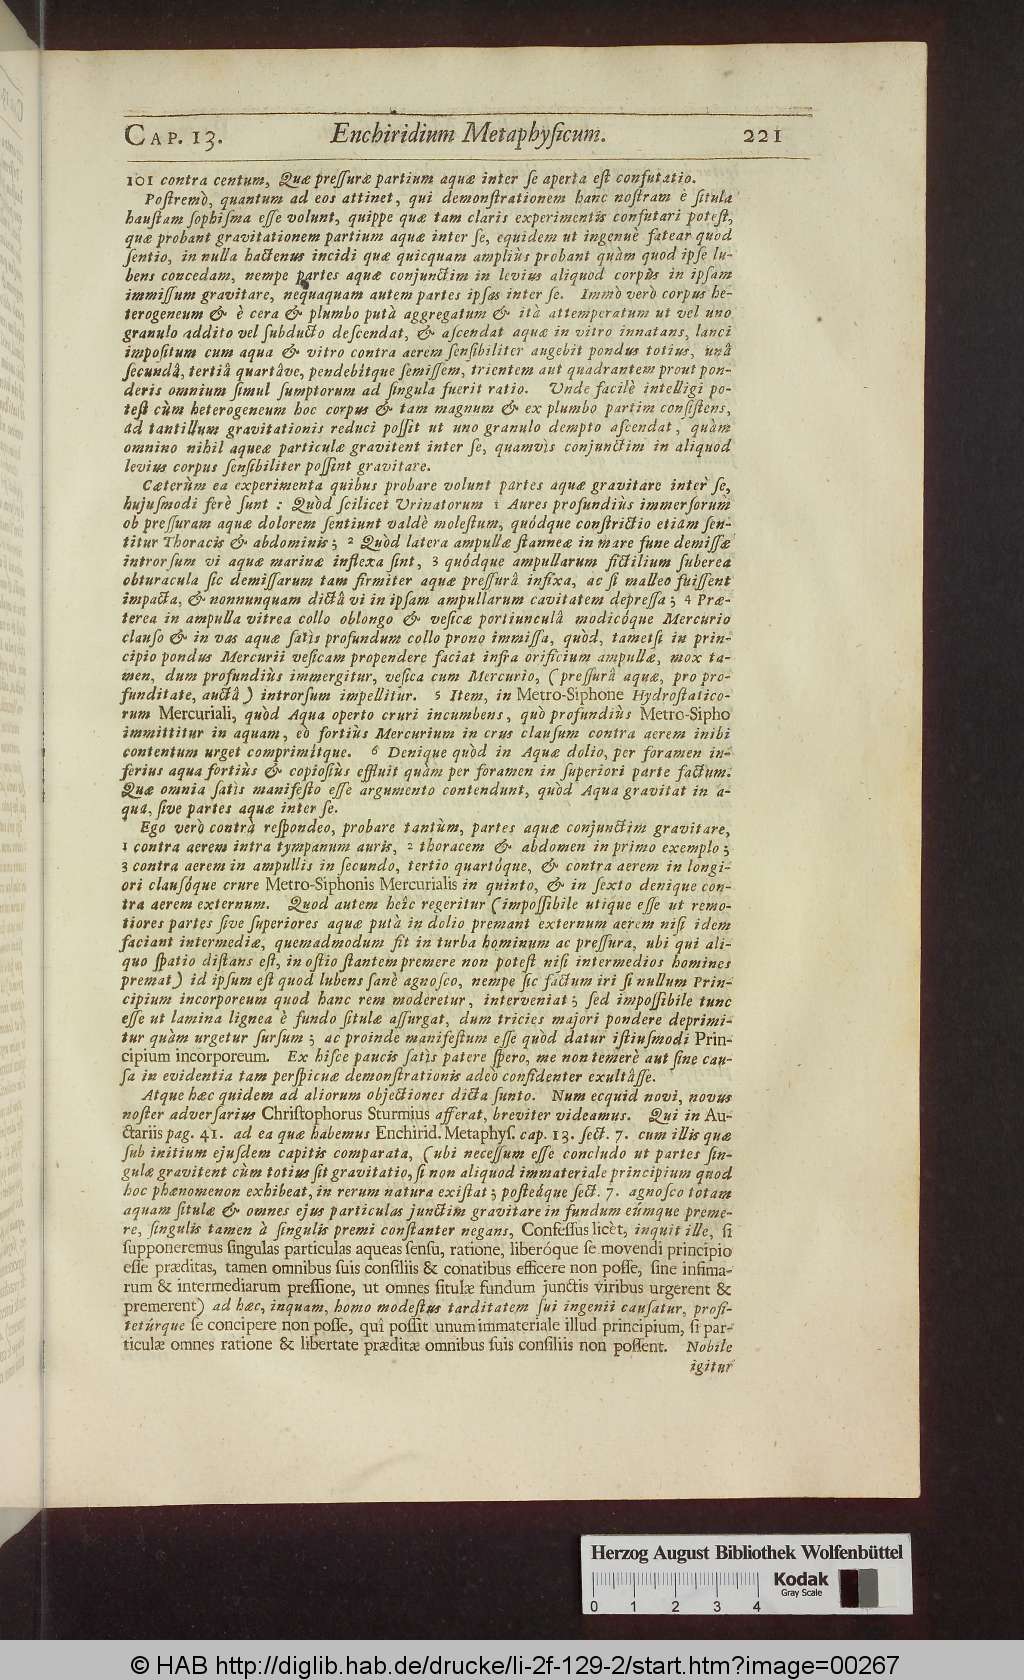 CAP. 13. Enchiridium Metaphyſicum. 221
101 contra centum, Quæ preſſuræ partium aquæ inter ſe aperta eſt confutatio.
Poſtremò, quantum ad eos attinet, qui demonſtrationem hanc noſtram è ſitula
hauſtam ſophiſma eſſe volunt, quippe quæ tam claris experimentis confutari poteſt,
quæ probant gravitationem partium aquæ inter ſe, equidem ut ingenuè fatear quod
ſentio, in nulla hactenus incidi quæ quicquam ampliùs probant quàm quod ipſe lu-
bens concedam, nempe partes aquæ conjunctim in levius aliquod corpus in ipſam
immiſſum gravitare, nequaquam autem partes ipſas inter ſe. Immò verò corpus he-
terogeneum & è cera & plumbo putà aggregatum & ità attemperatum ut vel uno
granulo addito vel ſubducto deſcendat, & aſcendat aquæ in vitro innatans, lanci
impoſitum cum aqua & vitro contra aerem ſenſibiliter augebit pondus totius, unâ
ſecundâ, tertiâ quartâve, pendebítque ſemiſſem, trientem aut quadrantem prout pon-
deris omnium ſimul ſumptorum ad ſingula fuerit ratio. Unde facilè intelligi po-
teſt cùm heterogeneum hoc corpus & tam magnum & ex plumbo partim conſiſtens,
ad tantillum gravitationis reduci poſſit ut uno granulo dempto aſcendat, quàm
omnino nihil aqueæ particulæ gravitent inter ſe, quamvìs conjunctim in aliquod
levius corpus ſenſibiliter poſſint gravitare.
Cæterùm ea experimenta quibus probare volunt partes aquæ gravitare inter ſe,
hujuſmodi ferè ſunt : Quòd ſcilicet Urinatorum 1 Aures profundiùs immerſorum
ob preſſuram aquæ dolorem ſentiunt valdè moleſtum, quódque conſtrictio etiam ſen-
titur Thoracis & abdominis; 2 Quòd latera ampullæ ſtanneæ in mare fune demiſſæ
introrſum vi aquæ marinæ inflexa ſint, 3 quódque ampullarum fictilium ſuberea
obturacula ſic demiſſarum tam firmiter aquæ preſſurâ infixa, ac ſi malleo fuiſſent
impacta, & nonnunquam dictâ vi in ipſam ampullarum cavitatem depreſſa; 4 Præ-
terea in ampulla vitrea collo oblongo & veſicæ portiunculâ modicóque Mercurio
clauſo & in vas aquæ ſatìs profundum collo prono immiſſa, quòd, tametſi in prin-
cipio pondus Mercurii veſicam propendere faciat infra orificium ampullæ, mox ta-
men, dum profundiùs immergitur, veſica cum Mercurio, (preſſurâ aquæ, pro pro-
funditate, auctâ) introrſum impellitur. 5 Item, in Metro-Siphone Hydroſtatico-
rum Mercuriali, quòd Aqua operto cruri incumbens, quò profundiùs Metro-Sipho
immittitur in aquam, eò fortiùs Mercurium in crus clauſum contra aerem inibi
contentum urget comprimítque. 6 Denique quòd in Aquæ dolio, per foramen in-
ferius aqua fortiùs & copioſiùs effluit quàm per foramen in ſuperiori parte factum.
Quæ omnia ſatìs manifeſto eſſe argumento contendunt, quòd Aqua gravitat in a-
qua, ſive partes aquæ inter ſe.
Ego verò contrà reſpondeo, probare tantùm, partes aquæ conjunctim gravitare,
1 contra aerem intra tympanum auris, 2 thoracem & abdomen in primo exemplo;
3 contra aerem in ampullis in ſecundo, tertio quartóque, & contra aerem in longi-
ori clauſóque crure Metro-Siphonis Mercurialis in quinto, & in ſexto denique con-
tra aerem externum. Quod autem heîc regeritur (impoſſibile utique eſſe ut remo-
tiores partes ſive ſuperiores aquæ putà in dolio premant externum aerem niſi idem
faciant intermediæ, quemadmodum fit in turba hominum ac preſſura, ubi qui ali-
quo ſpatio diſtans eſt, in oſtio ſtantem premere non poteſt niſi intermedios homines
premat) id ipſum eſt quod lubens ſanè agnoſco, nempe ſic factum iri ſi nullum Prin-
cipium incorporeum quod hanc rem moderetur, interveniat; ſed impoſſibile tunc
eſſe ut lamina lignea è fundo ſitulæ aſſurgat, dum tricies majori pondere deprimi-
tur quàm urgetur ſurſum; ac proinde manifeſtum eſſe quòd datur iſtiuſmodi Prin-
cipium incorporeum. Ex hiſce paucis ſatìs patere ſpero, me non temerè aut ſine cau-
ſa in evidentia tam perſpicuæ demonſtrationis adeò confidenter exultâſſe.
Atque hæc quidem ad aliorum objectiones dicta ſunto. Num ecquid novi, novus
noſter adverſarius Chriſtophorus Sturmius afferat, breviter videamus. Qui in Au-
ctariis pag. 41. ad ea quæ habemus Enchirid. Metaphyſ. cap. 13. ſect. 7. cum illis quæ
ſub initium ejuſdem capitis comparata, (ubi neceſſum eſſe concludo ut partes ſin-
gulæ gravitent cùm totius ſit gravitatio, ſi non aliquod immateriale principium quod
hoc phænomenon exhibeat, in rerum natura exiſtat; poſteáque ſect. 7. agnoſco totam
aquam ſitulæ & omnes ejus particulas junctim gravitare in fundum eúmque preme-
re, ſingulis tamen à ſingulis premi conſtanter negans, Confeſſus licèt, inquit ille, ſi
ſupponeremus ſingulas particulas aqueas ſenſu, ratione, liberóque ſe movendi principio
eſſe præditas, tamen omnibus ſuis conſiliis & conatibus efficere non poſſe, ſine infima-
rum & intermediarum preſſione, ut omnes ſitulæ fundum junctis viribus urgerent &
premerent) ad hæc, inquam, homo modeſtus tarditatem ſui ingenii cauſatur, profi-
tetúrque ſe concipere non poſſe, quî poſſit unum immateriale illud principium, ſi par-
ticulæ omnes ratione & libertate præditæ omnibus ſuis conſiliis non poſſent. Nobile
igitur
Herzog August Bibliothek Wolfenbüttel
Kodak
Gray Scale
0 1 2 3 4
© HAB http://diglib.hab.de/drucke/li-2f-129-2/start.htm?image=00267